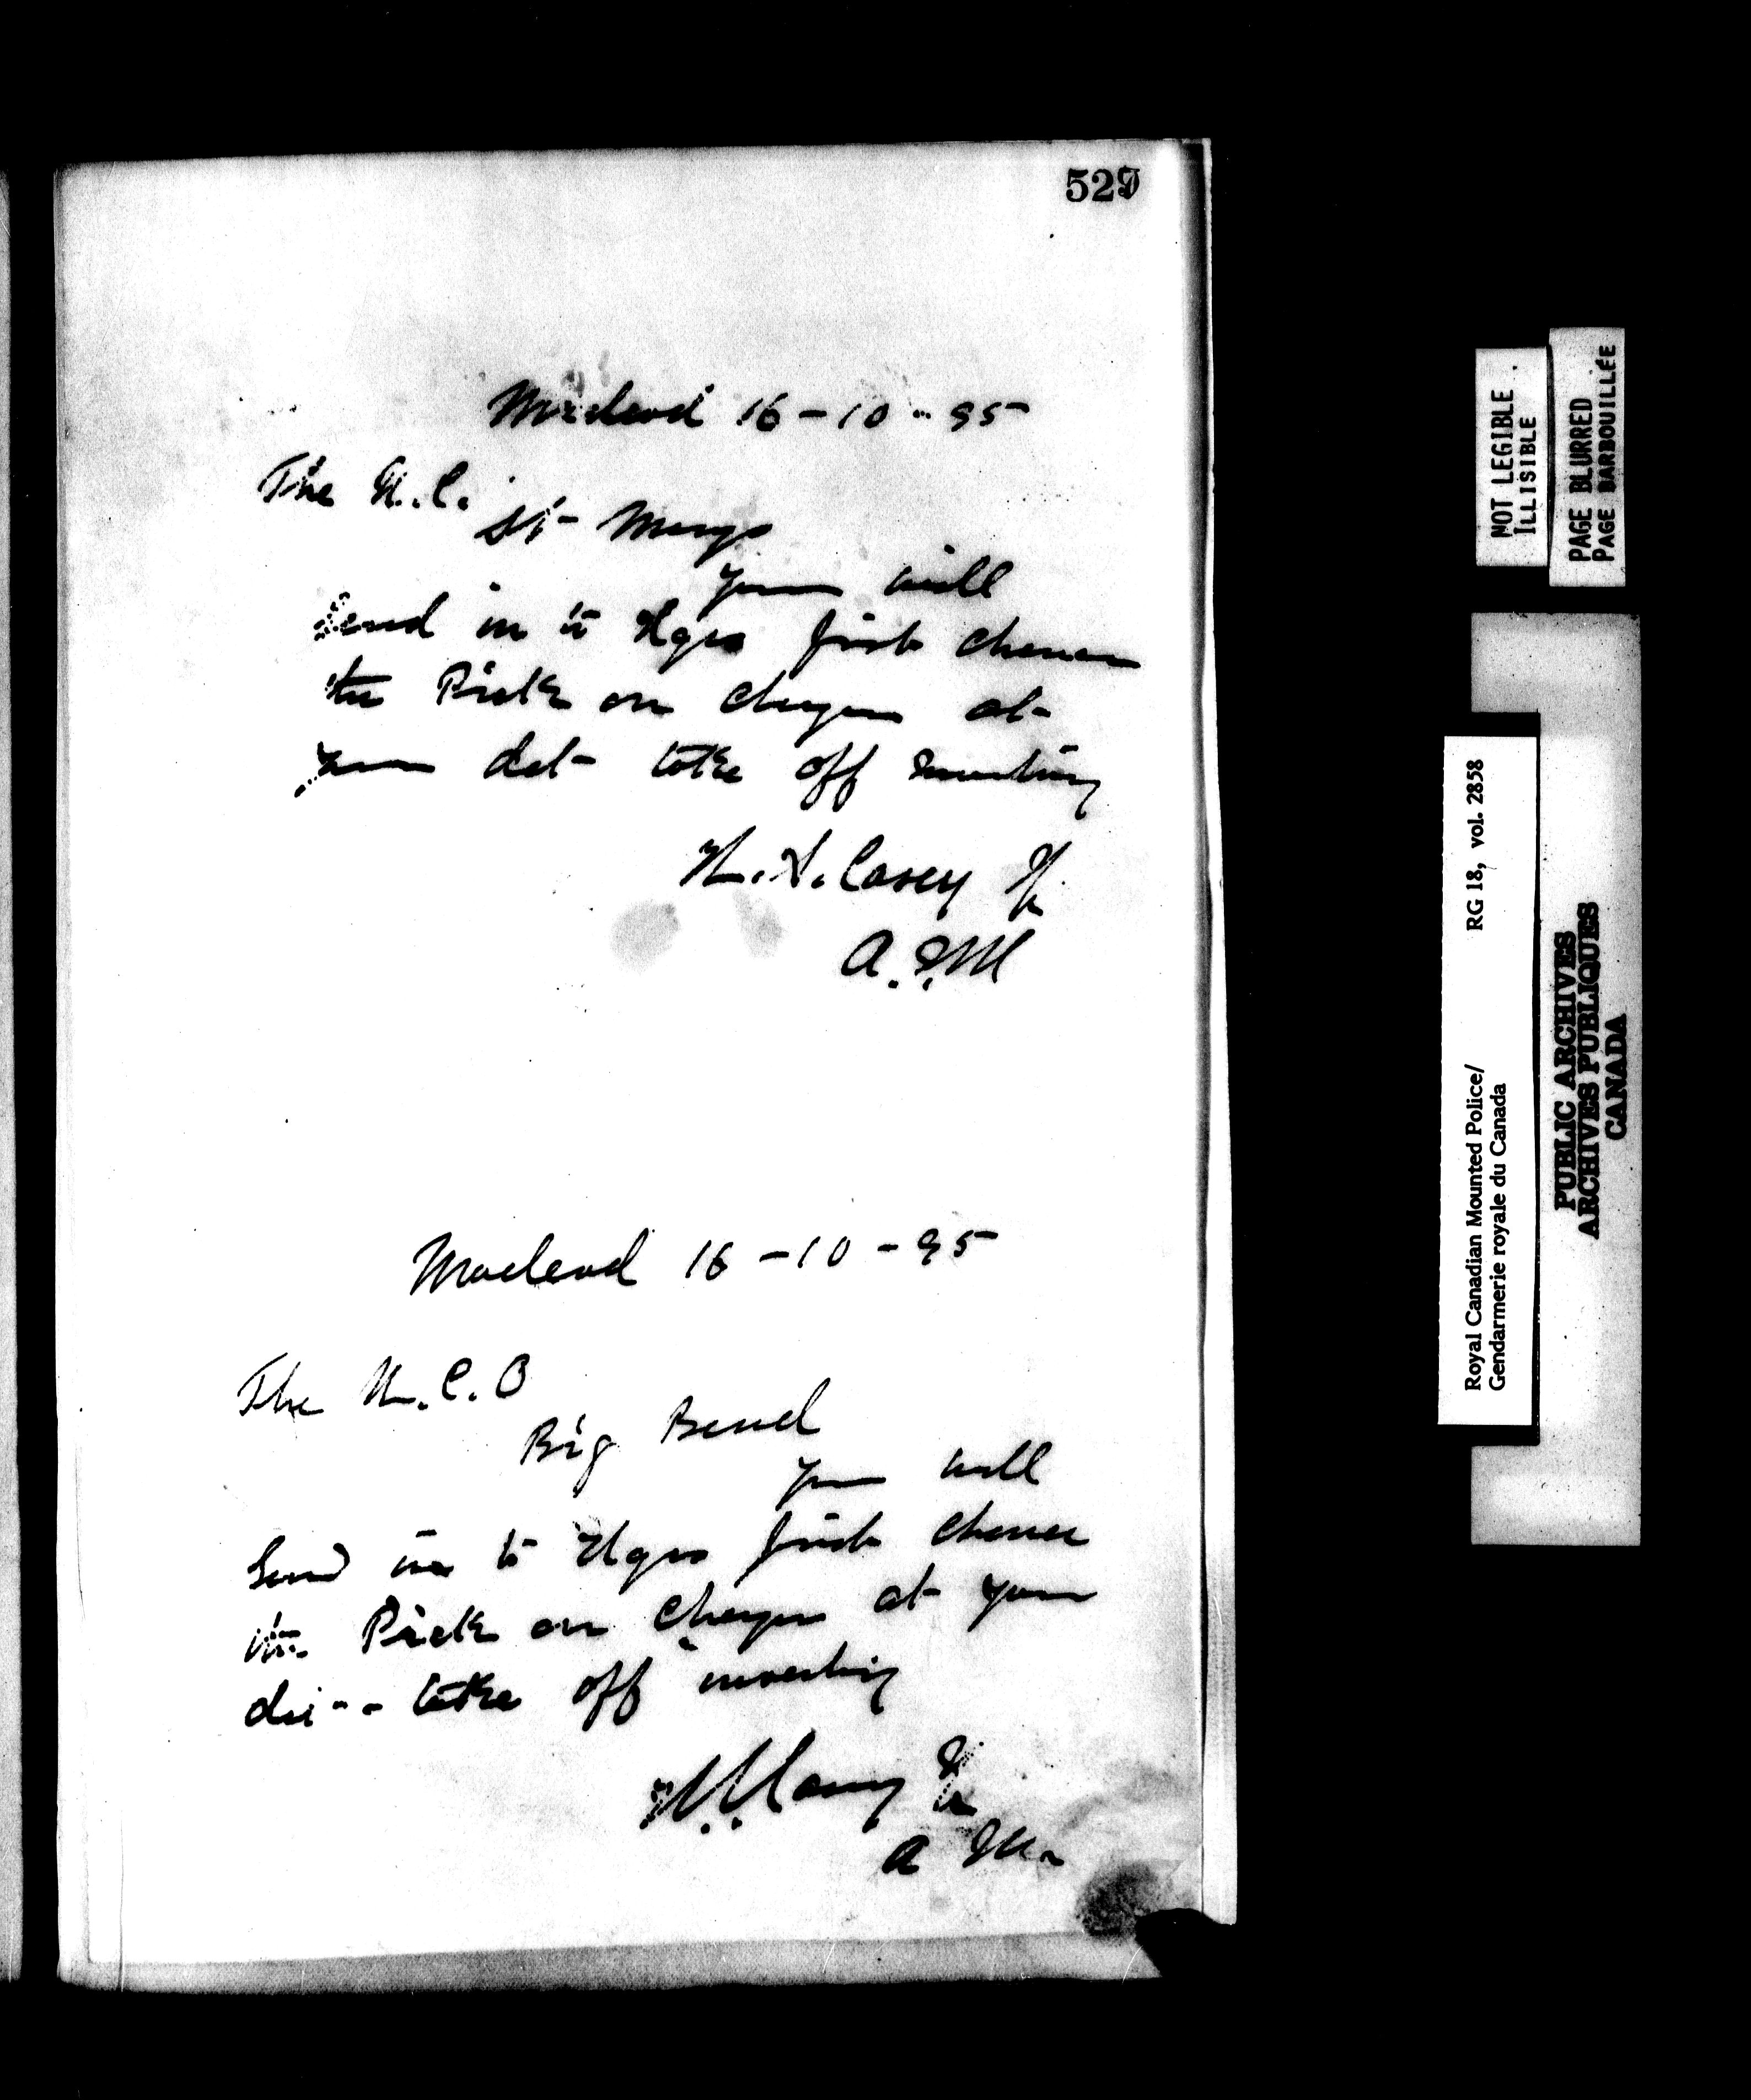 529
Macleod 16-10-95
The N.C.
St Marys
You will
Send in to Hqrs first chance
the Pick on charge at
your det- take off monthly
H.S. Casey Jr
A.
Macleod 16-10-95
The N.C.O
Big Bend
You will
Send in to Hqrs first chance
the Pick on charge at your
take off monthly
Casey Jr
A
NOT LEGIBLE
ILLISIBLE
PAGE BLURRED
PAGE BARBOUILLÉE
RG 18, vol. 2858
Royal Canadian Mounted Police/
Gendarmerie royale du Canada
PUBLIC ARCHIVES
ARCHIVES PUBLIQUES
CANADA